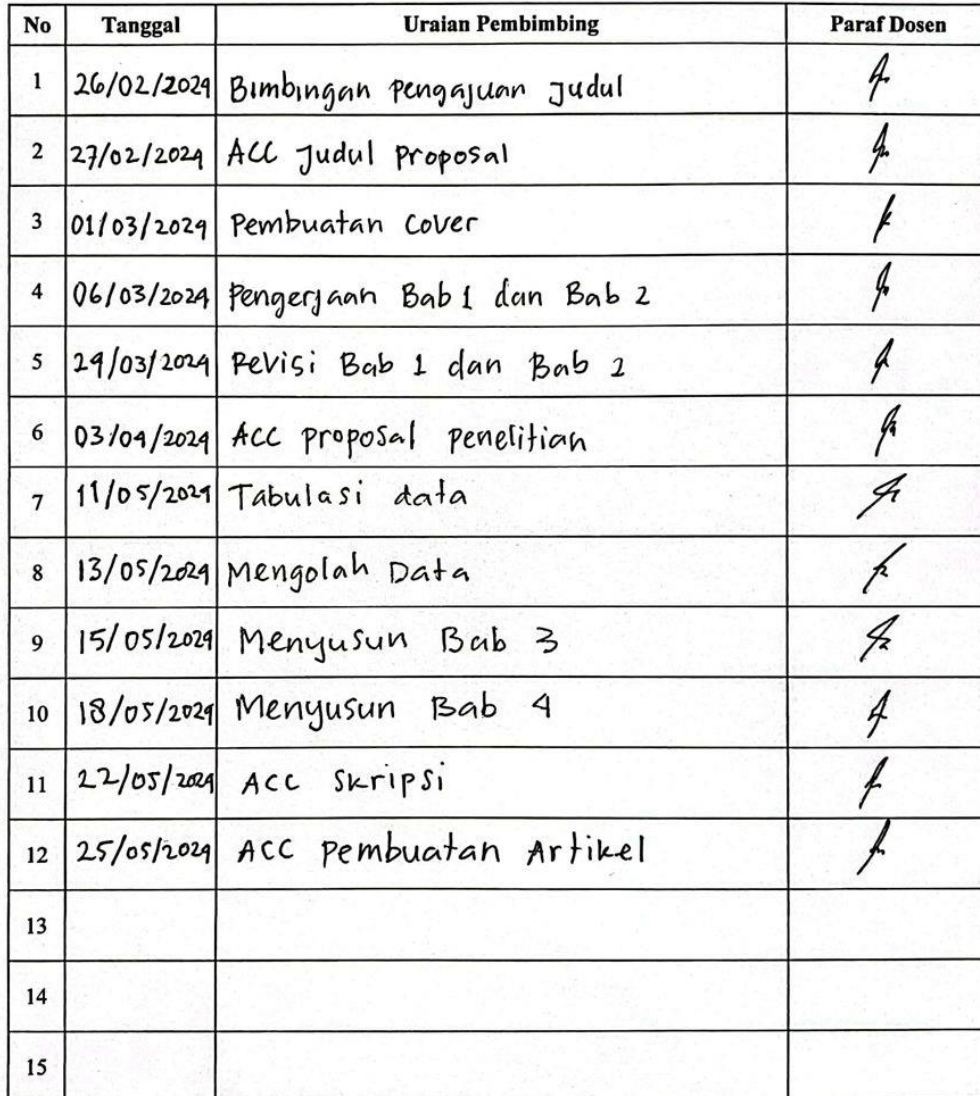 No Tanggal Uraian Pembimbing Paraf Dosen
1 26/02/2024 Bimbingan Pengajuan Judul
2 27/02/2024 ACC Judul Proposal
3 01/03/2024 Pembuatan Cover
4 06/03/2024 Pengerjaan Bab 1 dan Bab 2
5 29/03/2024 Revisi Bab 1 dan Bab 2
6 03/04/2024 ACC proposal penelitian
7 11/05/2024 Tabulasi data
8 13/05/2024 Mengolah Data
9 15/05/2024 Menyusun Bab 3
10 18/05/2024 Menyusun Bab 4
11 22/05/2024 ACC Skripsi
12 25/05/2024 ACC Pembuatan Artikel
13
14
15